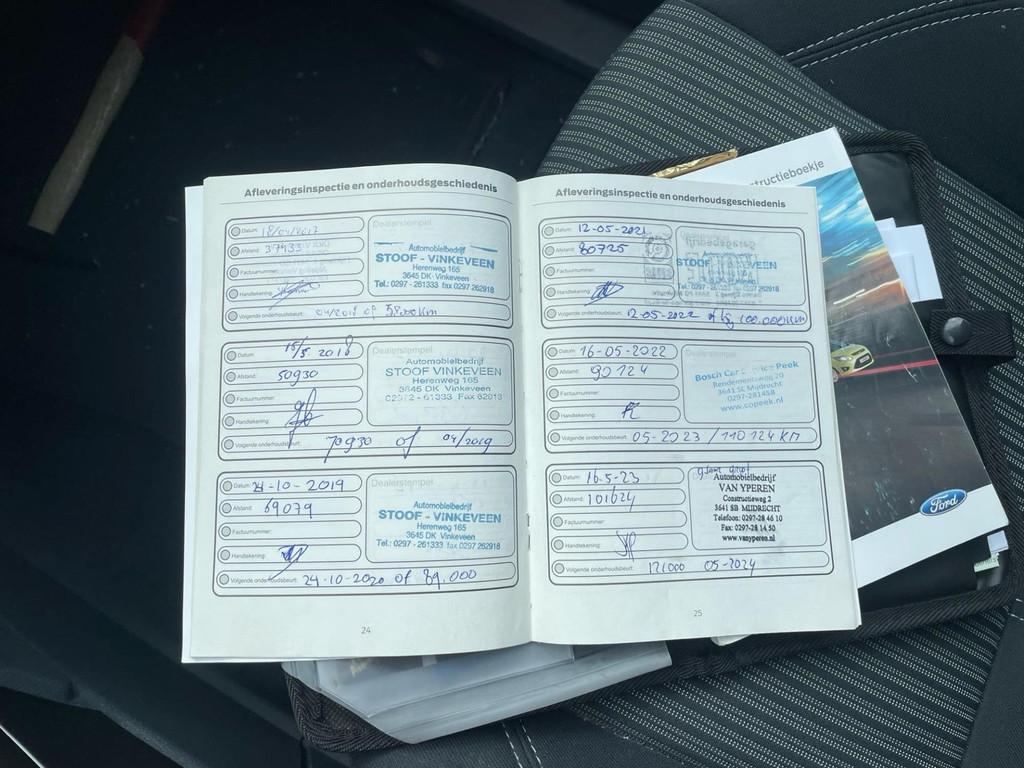 Afleveringsinspectie en onderhoudsgeschiedenis
Datum: 18/04/2017
Afstand: 37933
Factuurnummer:
Handtekening:
Volgende onderhoudsbeurt: 04/2018 of 58.000 km
Dealerstempel
Automobielbedrijf
STOOF - VINKEVEEN
Herenweg 165
3645 DK Vinkeveen
Tel.: 0297 - 261333 fax 0297 262918
Datum: 15/5 2018
Afstand: 50930
Factuurnummer:
Handtekening:
Volgende onderhoudsbeurt: 70930 of 04/2019
Dealerstempel
Automobielbedrijf
STOOF VINKEVEEN
Herenweg 165
3645 DK Vinkeveen
02972 - 61333 Fax 62013
Datum: 24-10-2019
Afstand: 69079
Factuurnummer:
Handtekening:
Volgende onderhoudsbeurt: 24-10-2020 of 89,000
Dealerstempel
Automobielbedrijf
STOOF - VINKEVEEN
Herenweg 165
3645 DK Vinkeveen
Tel.: 0297 - 261333 fax 0297 262918
24
Afleveringsinspectie en onderhoudsgeschiedenis
Datum: 12-05-2021
Afstand: 80725
Factuurnummer:
Handtekening:
Volgende onderhoudsbeurt: 12-05-2022 of bij 100.000km
STOOF VINKEVEEN
Datum: 16-05-2022
Afstand: 90124
Factuurnummer:
Handtekening:
Volgende onderhoudsbeurt: 05-2023 / 110124 KM
Dealerstempel
Bosch Car Service Peek
Rendementsweg 20
3641 SL Mijdrecht
0297-281458
www.copeek.nl
Datum: 16-5-23
Afstand: 101624
Factuurnummer:
Handtekening:
Volgende onderhoudsbeurt: 121000 05-2024
Automobielbedrijf
VAN YPEREN
Constructieweg 2
3641 SB MIJDRECHT
Telefoon: 0297-28 46 10
Fax: 0297-28 14 50
www.vanyperen.nl
25
structieboekje
Ford